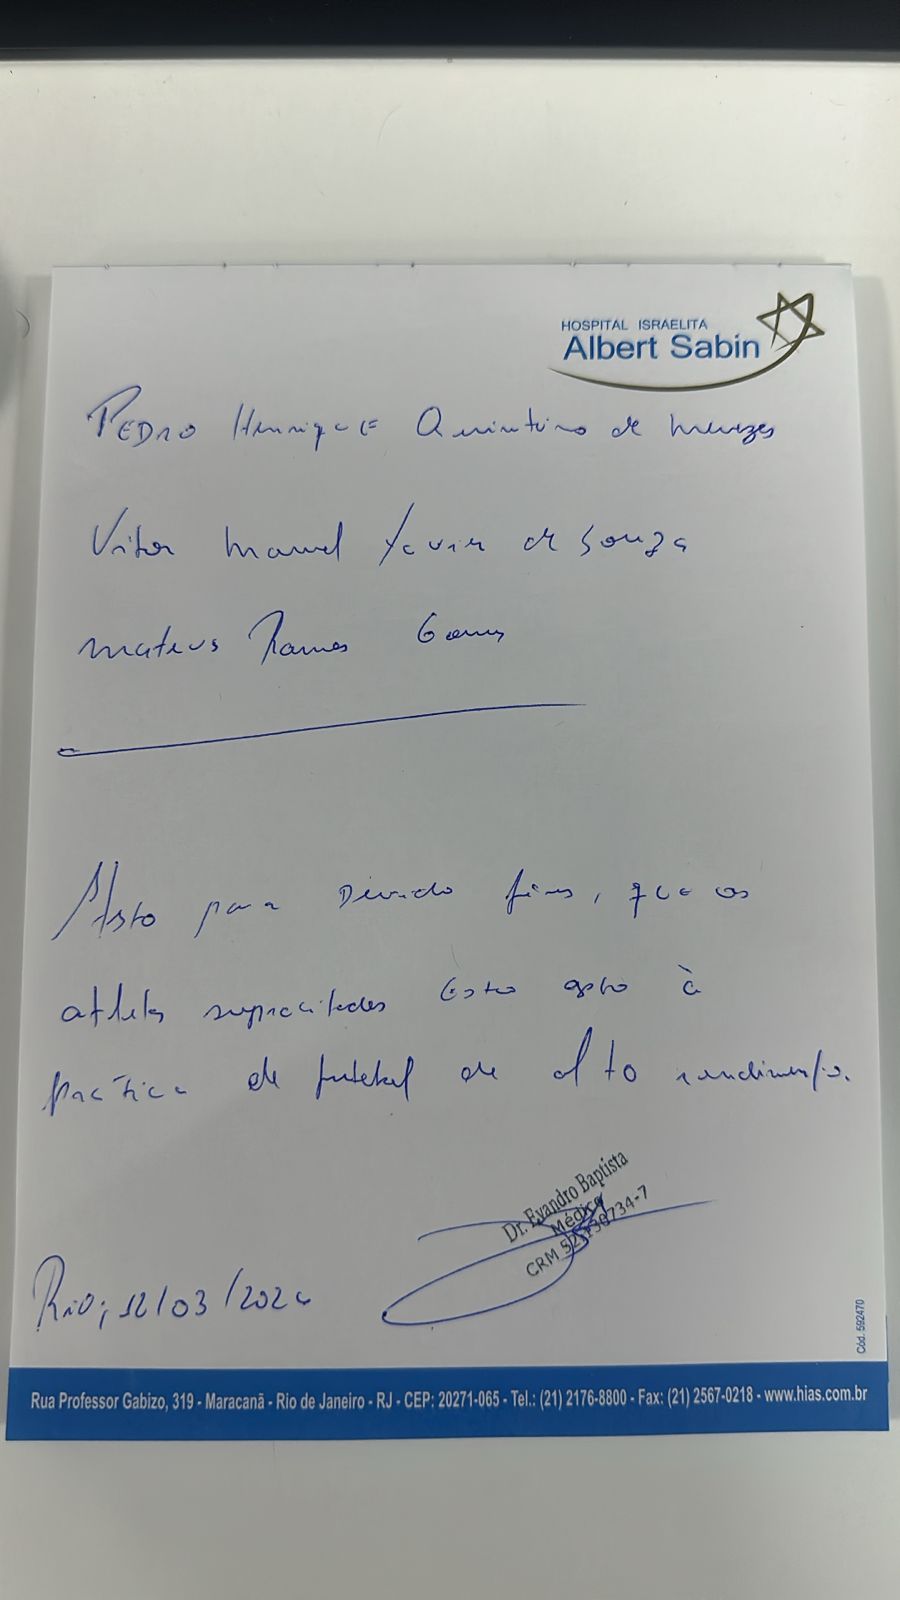 HOSPITAL ISRAELITA
Albert Sabin
PEDRO HenriquE Quintino de Menezes
Vitor Manuel Xavier de Souza
Mateus Ramos Gomes
Atesto para Devido fins, que os
atletas supracitados Esto apto à
prática de futebol de alto rendimento.
Dr. Evandro Baptista
Médico
CRM
Rio, 12/03/202
Cód. 592470
Rua Professor Gabizo, 319 - Maracanã - Rio de Janeiro - RJ - CEP: 20271-065 - Tel.: (21) 2176-8800 - Fax: (21) 2567-0218 - www.hias.com.br